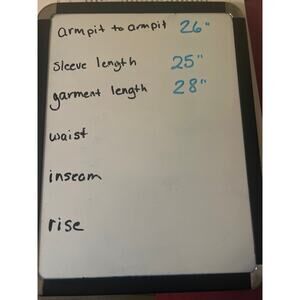 armpit to armpit 26"
sleeve length 25"
garment length 28"
waist
inseam
rise